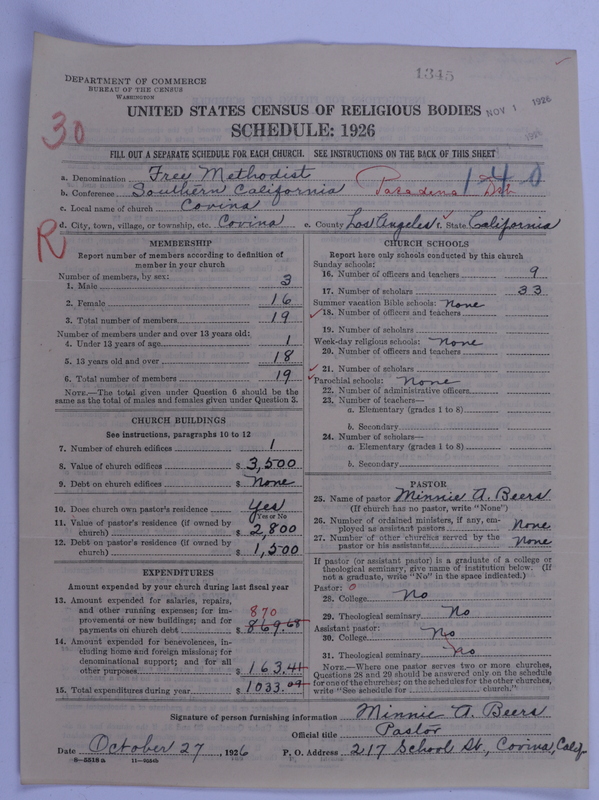 1345
DEPARTMENT OF COMMERCE
BUREAU OF THE CENSUS
WASHINGTON
UNITED STATES CENSUS OF RELIGIOUS BODIES
NOV 1 1926
SCHEDULE: 1926
30
FILL OUT A SEPARATE SCHEDULE FOR EACH CHURCH. SEE INSTRUCTIONS ON THE BACK OF THIS SHEET
a. Denomination Free Methodist 140
b. Conference Southern California Pasadena Dst
c. Local name of church Covina
d. City, town, village, or township, etc. Covina e. County Los Angeles f. State California
R
MEMBERSHIP
Report number of members according to definition of
member in your church
Number of members, by sex:
1. Male 3
2. Female 16
3. Total number of members 19
Number of members under and over 13 years old:
4. Under 13 years of age 1
5. 13 years old and over 18
6. Total number of members 19
NOTE.—The total given under Question 6 should be the
same as the total of males and females given under Question 3.
CHURCH BUILDINGS
See instructions, paragraphs 10 to 12
7. Number of church edifices 1
8. Value of church edifices $ 3,500
9. Debt on church edifices $ None
10. Does church own pastor's residence Yes
Yes or No
11. Value of pastor's residence (if owned by
church) $ 2,800
12. Debt on pastor's residence (if owned by
church) $ 1,500
EXPENDITURES
Amount expended by your church during last fiscal year
13. Amount expended for salaries, repairs,
and other running expenses; for im-
provements or new buildings; and for
payments on church debt $ 869.68
870
14. Amount expended for benevolences, in-
cluding home and foreign missions; for
denominational support; and for all
other purposes $ 163.41
15. Total expenditures during year $ 1033.09
CHURCH SCHOOLS
Report here only schools conducted by this church
Sunday schools:
16. Number of officers and teachers 9
17. Number of scholars 33
Summer vacation Bible schools: None
18. Number of officers and teachers
19. Number of scholars
Week-day religious schools: None
20. Number of officers and teachers
21. Number of scholars
Parochial schools: None
22. Number of administrative officers
23. Number of teachers—
a. Elementary (grades 1 to 8)
b. Secondary
24. Number of scholars—
a. Elementary (grades 1 to 8)
b. Secondary
PASTOR
25. Name of pastor Minnie A. Beers
(If church has no pastor, write "None")
26. Number of ordained ministers, if any, em-
ployed as assistant pastors None
27. Number of other churches served by the
pastor or his assistants None
If pastor (or assistant pastor) is a graduate of a college or
theological seminary, give name of institution below. (If
not a graduate, write "No" in the space indicated.)
Pastor: 0
28. College No
29. Theological seminary No
Assistant pastor:
30. College No
31. Theological seminary No
NOTE.—Where one pastor serves two or more churches,
Questions 28 and 29 should be answered only on the schedule
for one of the churches; on the schedules for the other churches,
write "See schedule for church."
Signature of person furnishing information Minnie A. Beers
Official title Pastor
Date October 27, 1926 P. O. Address 217 School St., Covina, Calif
8—5518a